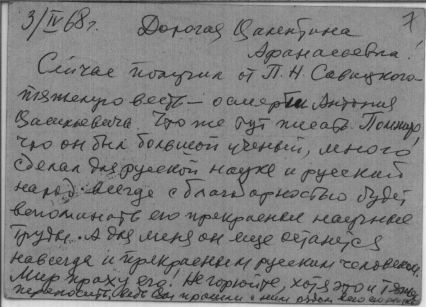 3/IV 68г. Дорогая Валентина 7
Афанасьевна!
Сейчас получил от П. Н. Савицкого
тяжелую весть — о смерти Антония
Васильевича. Что же тут писать.
что он был большой ученый, много
сделал для русской науки и русский
народ всегда с благодарностью будет
вспоминать его прекрасные научные
труды. А для меня он еще останется
навсегда и прекрасным русским человеком.
Мир праху его! Не горюйте, хотя это и
переносить. Ведь Вы прошли с ним рядом